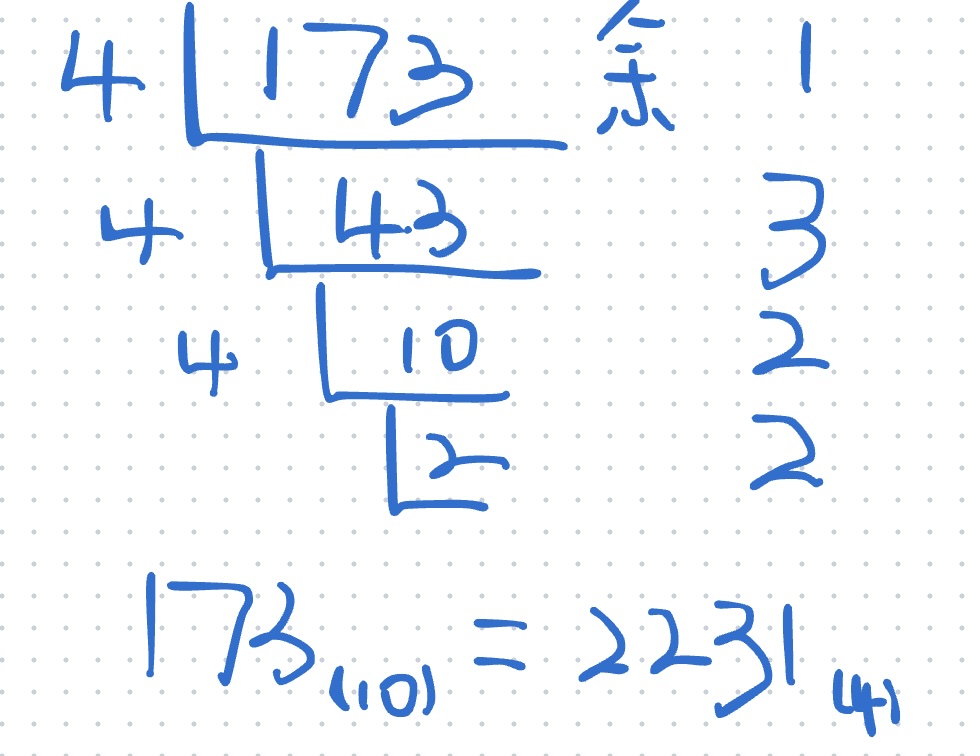 4 173 余 1
4 43 3
4 10 2
2 2
173(10) = 2231(4)